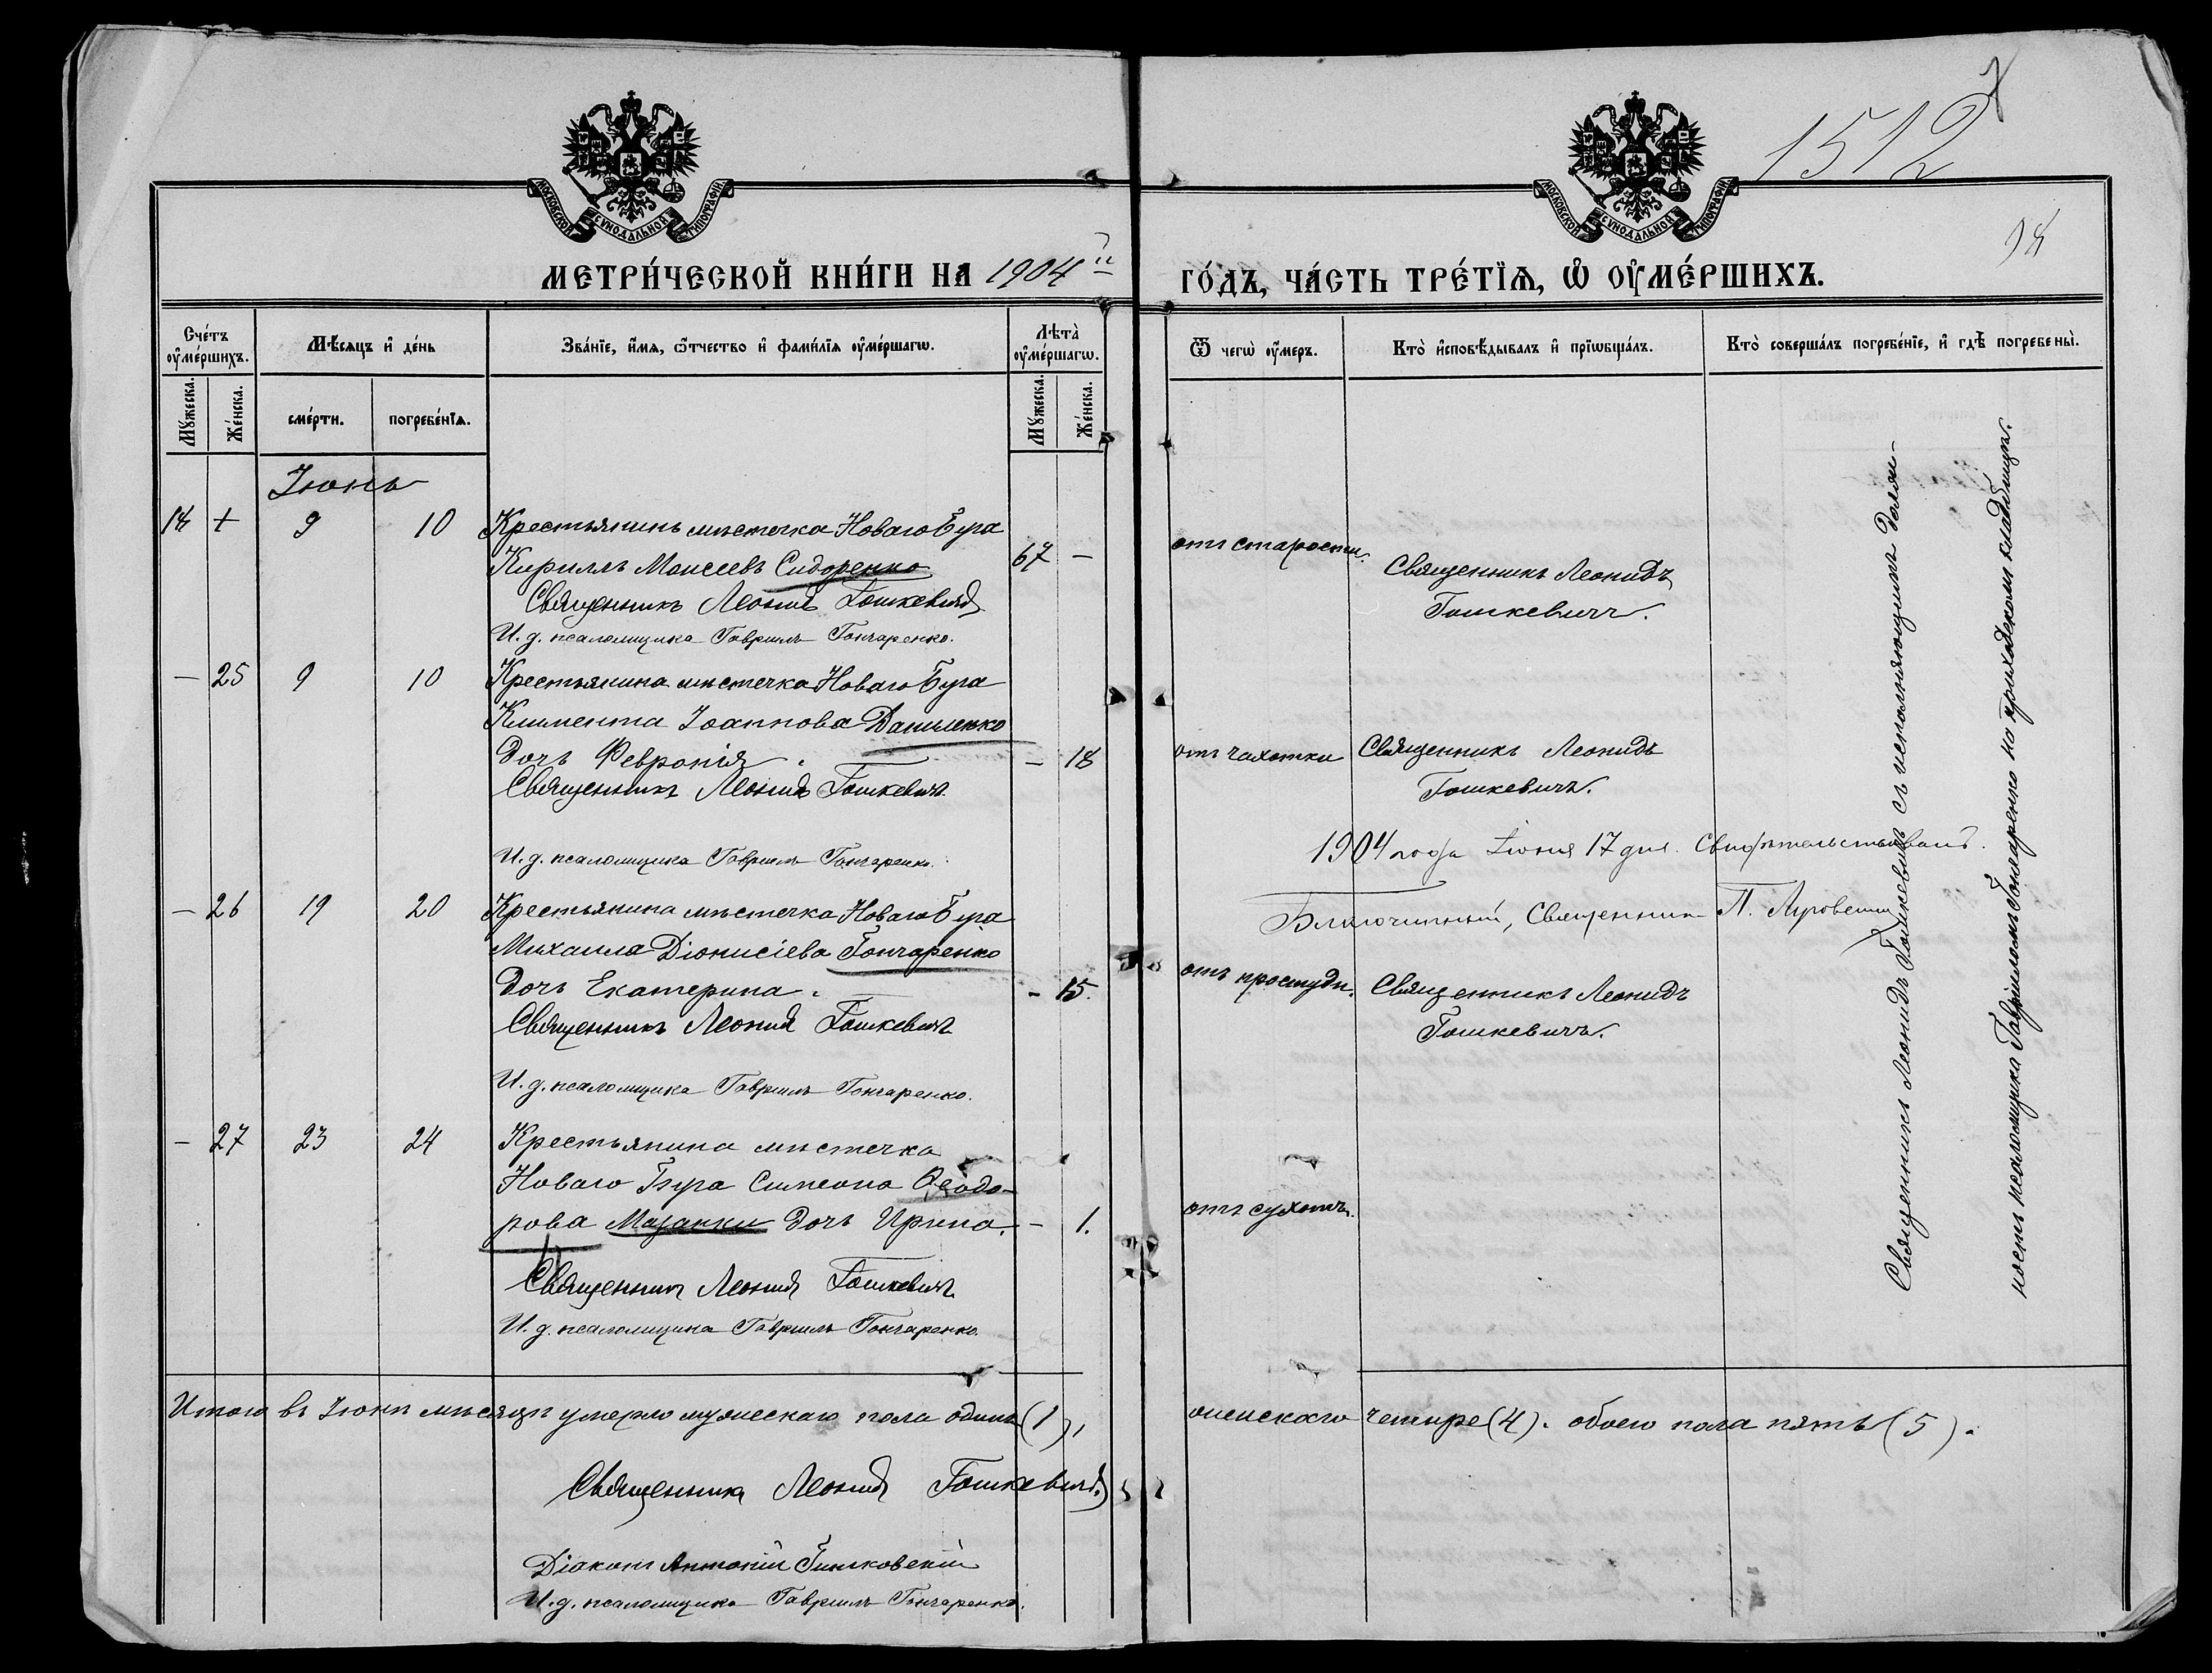 1512
МОСКОВСКОЙ СѴНОДАЛЬНОЙ ТИПОГРАФІИ
МОСКОВСКОЙ СѴНОДАЛЬНОЙ ТИПОГРАФІИ
МЕТРИ́ЧЕСКОЙ КНИ́ГИ НА 1904й ГО́ДЪ, ЧА́СТЬ ТРЕ́ТЇѦ, Ѡ҆ ОУ҆МЕ́РШИХЪ.
Сче́тъ оу҆ме́ршихъ.
Мѣ́сѧцъ и҆ де́нь
Зва́нїе, и҆́мѧ, ѻ҆́тчество и҆ фами́лїѧ оу҆ме́ршагѡ.
Лѣ̑та оу҆ме́ршагѡ.
Ѿ чегѡ̀ оу҆́меръ.
Кто̀ и҆сповѣ́дывалъ и҆ прїѡбща́лъ.
Кто̀ соверша́лъ погребе́нїе, и҆ гдѣ̀ погребены̀.
Мꙋ́жеска.
Же́нска.
сме́рти.
погребе́нїѧ.
Мꙋ́жеска.
Же́нска.
Іюнь
18 + 9 10 Крестьянинъ мѣстечка Новаго Буга
Кириллъ Моисеевъ Сидоренко 67 – отъ старости. Священникъ Леонидъ
Священникъ Леонидъ Гошкевичъ Гошкевичъ.
И. д. псаломщика Гавріилъ Гончаренко.
– 25 9 10 Крестьянина мѣстечка Новаго Буга
Климента Іоаннова Даниленко
дочь Февронія. – 18 отъ чахотки Священникъ Леонидъ
Священникъ Леонидъ Гошкевичъ Гошкевичъ.
И. д. псаломщика Гавріилъ Гончаренко.
1904 года Іюня 17 дня. Свидѣтельствовалъ.
Благочинный, Священникъ П.
– 26 19 20 Крестьянина мѣстечка Новаго Буга
Михаила Діонисіева Гончаренко
дочь Екатерина. – 15. отъ простуды. Священникъ Леонидъ
Священникъ Леонидъ Гошкевичъ Гошкевичъ.
И. д. псаломщика Гавріилъ Гончаренко.
– 27 23 24 Крестьянина мѣстечка
Новаго Буга Симеона Ѳеодо-
рова Мазанки дочь Ирина. – 1. отъ сухотъ.
Священникъ Леонидъ Гошкевичъ
И. д. псаломщика Гавріилъ Гончаренко.
Священникъ Леонидъ Гошкевичъ съ исполняющимъ долж-
ность псаломщика Гавріиломъ Гончаренко на приходскомъ кладбищѣ.
Итого въ Іюнѣ мѣсяцѣ умерло мужескаго пола одинъ (1), женскаго четыре (4). обоего пола пять (5).
Священникъ Леонидъ Гошкевичъ.
Діаконъ Антоній
И. д. псаломщика Гавріилъ Гончаренко.